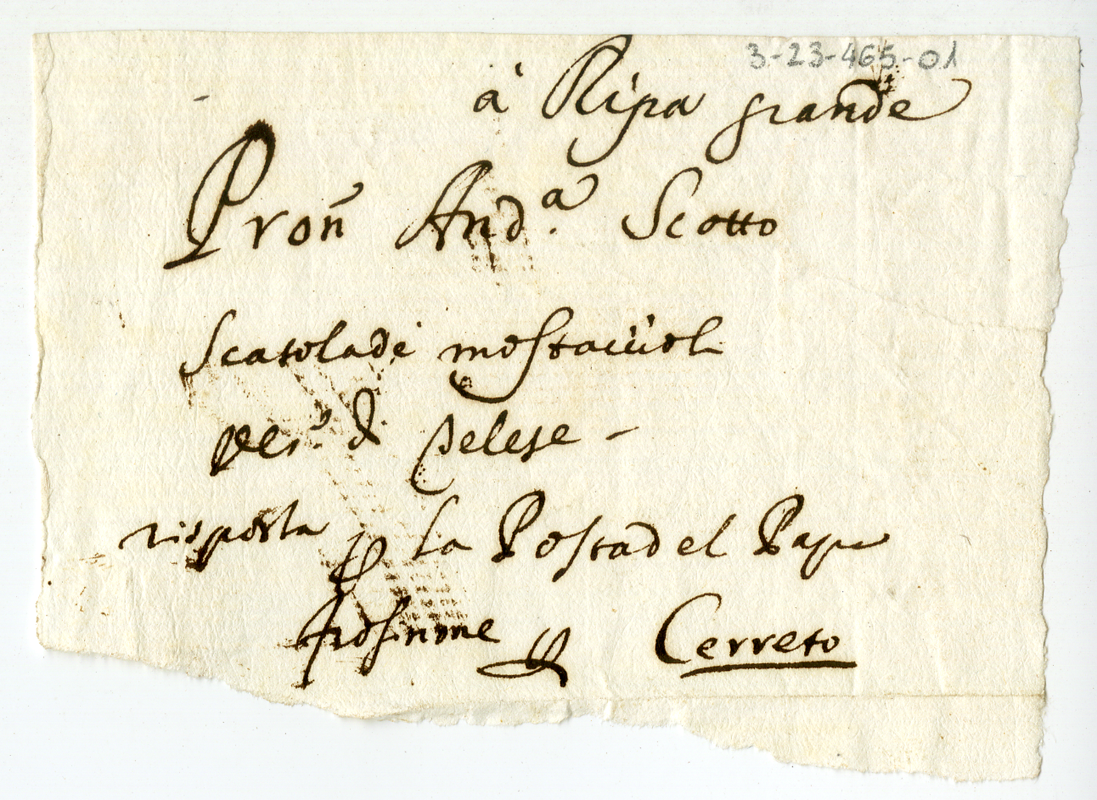 3-23-465-01
à Ripa grande
Pron̄ And.ª Scotto
Scatola di mostaciioli
di Pelese -
risposta ꝑ la Posta del Papa
Frosinone ꝑ Cerreto